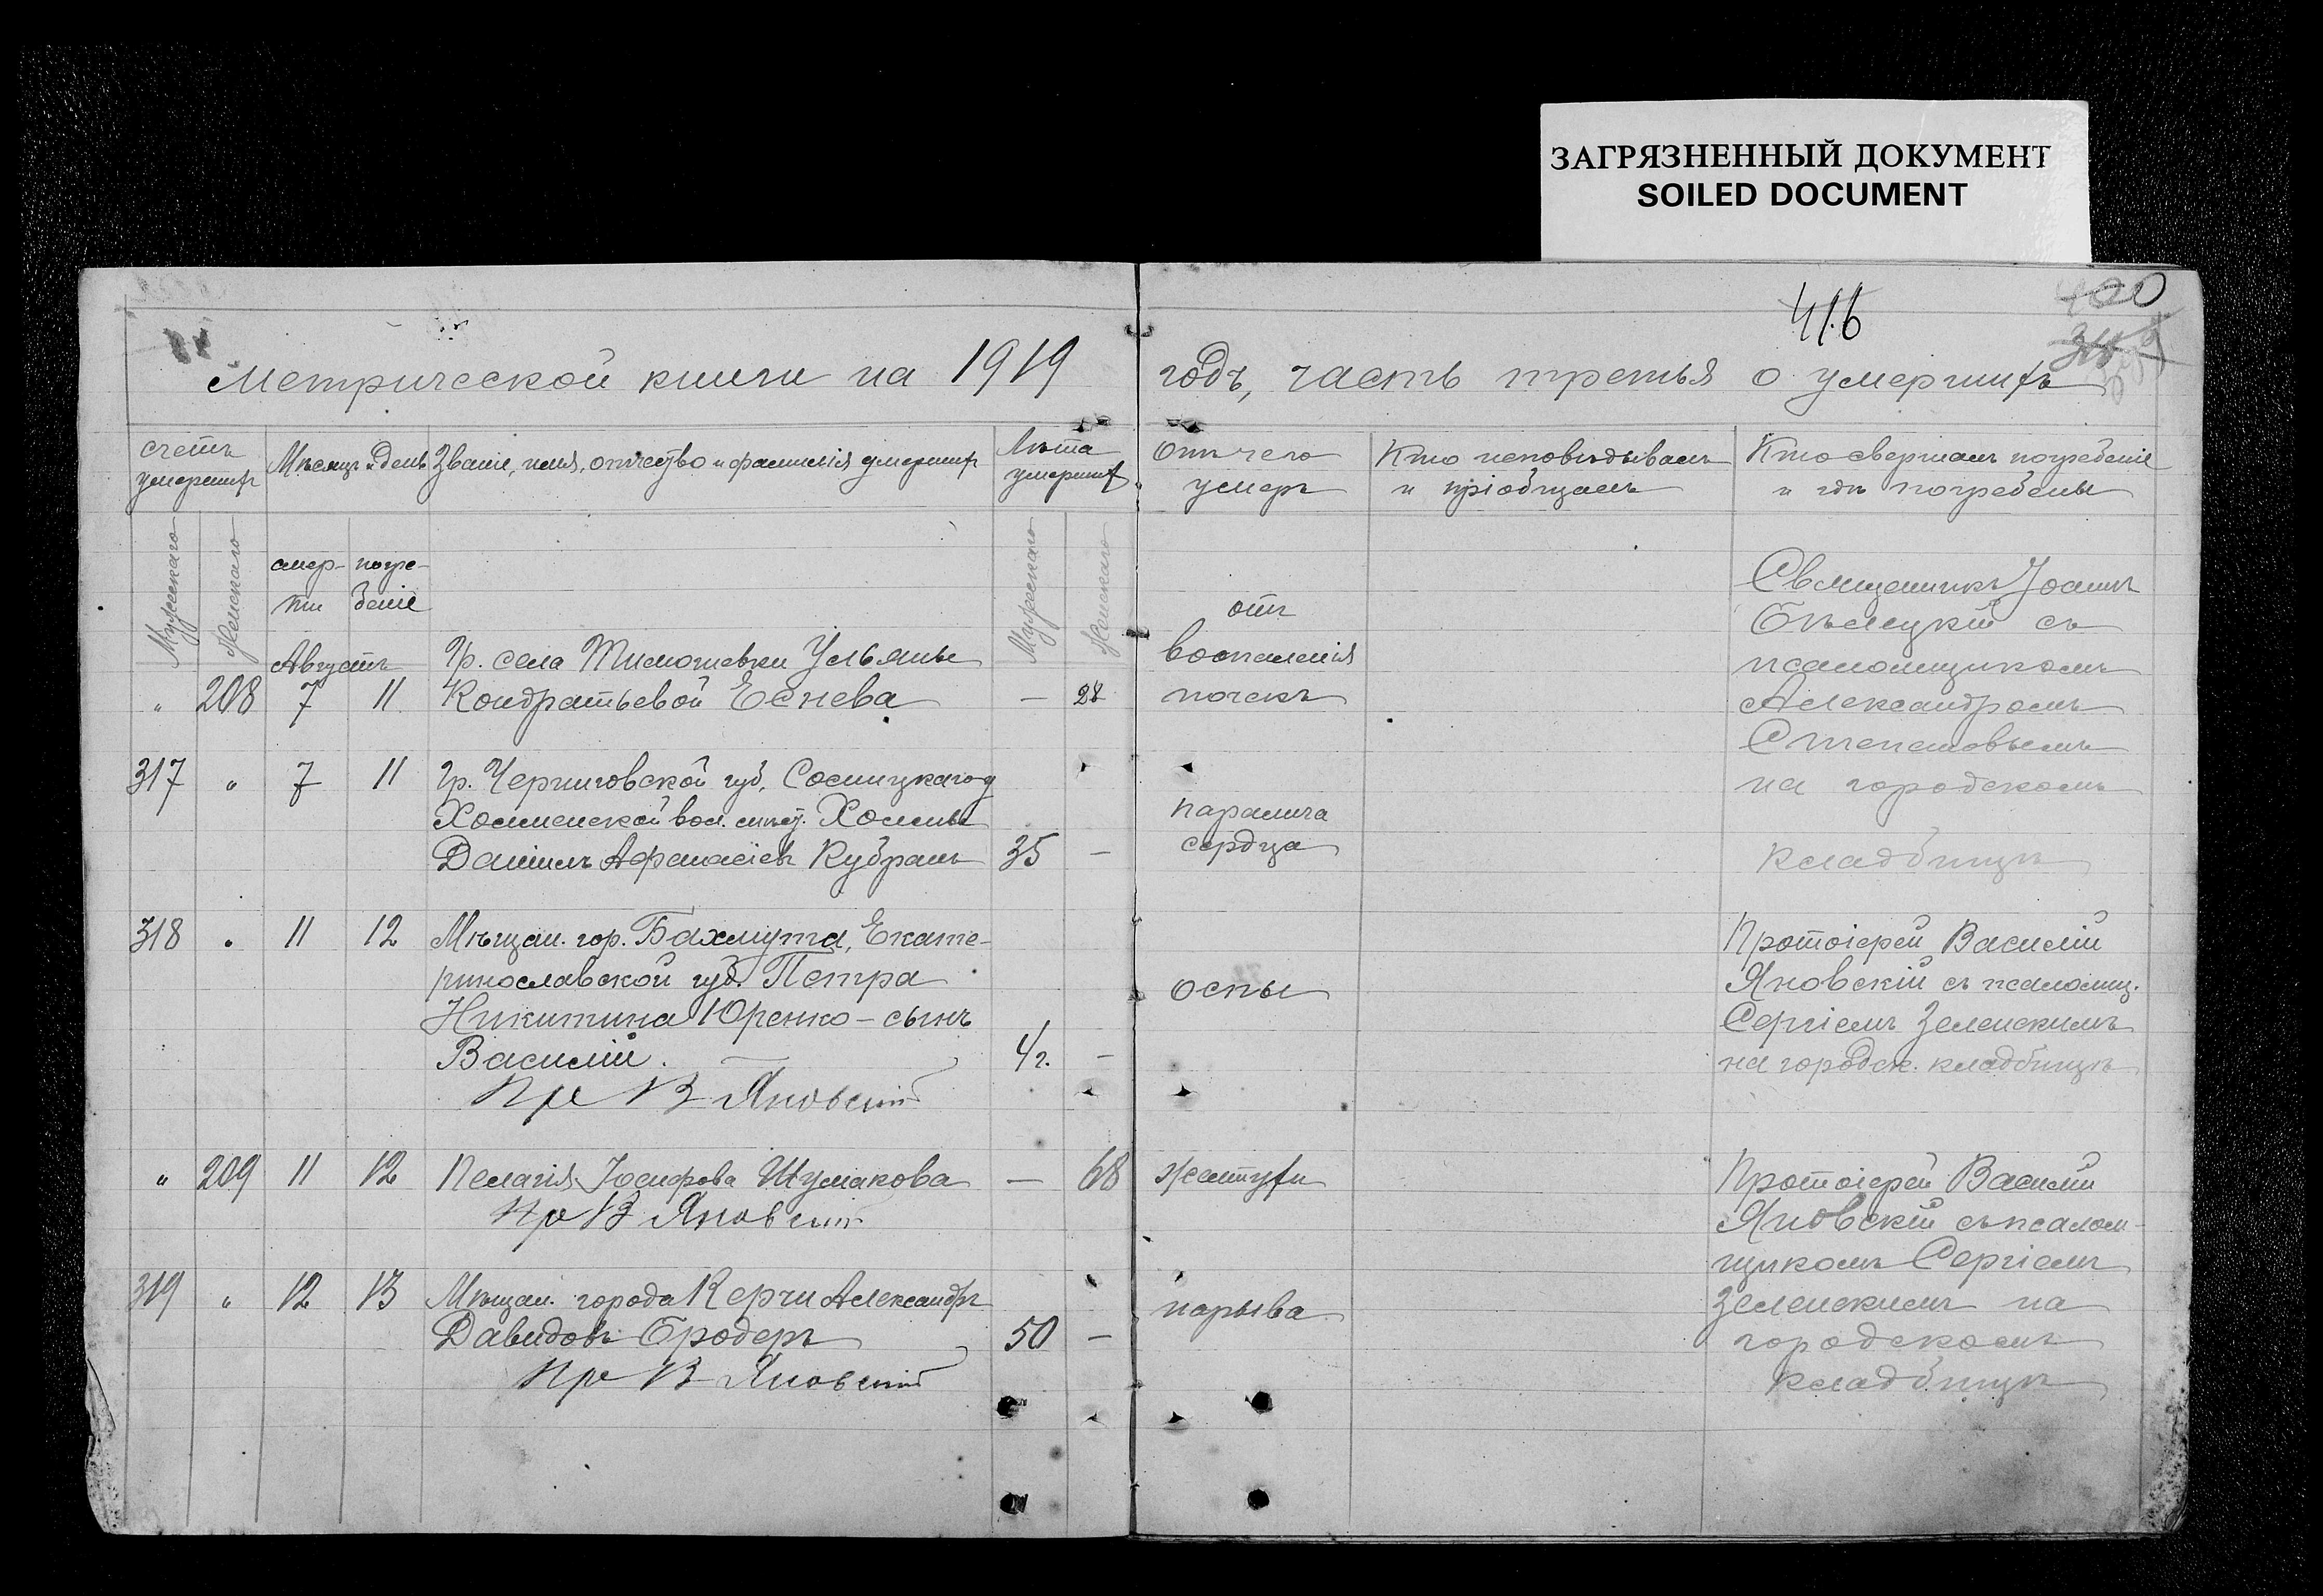 ЗАГРЯЗНЕННЫЙ ДОКУМЕНТ
SOILED DOCUMENT
416
400
Метрической книги на 1919 годъ, часть третья о умершихъ
счетъ умершихъ
Мѣсяцъ и день
Званіе, имя, отчество и фамилія умершихъ
Лѣта умершихъ
Отъ чего умеръ
Кто исповѣдывалъ и пріобщалъ
Кто совершалъ погребеніе и гдѣ погребены
Мужескаго
Женскаго
смер-ти
погре-беніе
Мужескаго
Женскаго
Августъ
Гр. села Тимошевки Ульяны
" 208 7 11 Кондратьевой Еснева — 28
отъ
воспаленія
почекъ
Священникъ Іоаннъ
Бѣлецкій съ
псаломщикомъ
Александромъ
Степановымъ
на городскомъ
кладбищѣ
317 " 7 11 Гр. Черниговской губ. Сосницкаго у
Холменской вол. мѣст. Холмы
Даніилъ Афанасіевъ Кубрамъ 35 —
паралича
сердца
318 " 11 12 Мѣщан. гор. Бахмута, Екате-
ринославской губ. Петра
Никитина Юренко – сынъ
Василій. 4 г. —
Пр В Яновскій
оспы
Протоіерей Василій
Яновскій съ псаломщ.
Сергіемъ Зеленскимъ
на городск. кладбищѣ
" 209 11 12 Пелагія Іосифова Шумакова — 68
Пр В Яновскій
желтухи
Протоіерей Василій
Яновскій съ псалом-
щикомъ Сергіемъ
Зеленскимъ на
городскомъ
кладбищѣ
319 " 12 13 Мѣщан. города Керчи Александръ
Давидовъ Бродеръ 50 —
Пр В Яновскій
нарыва